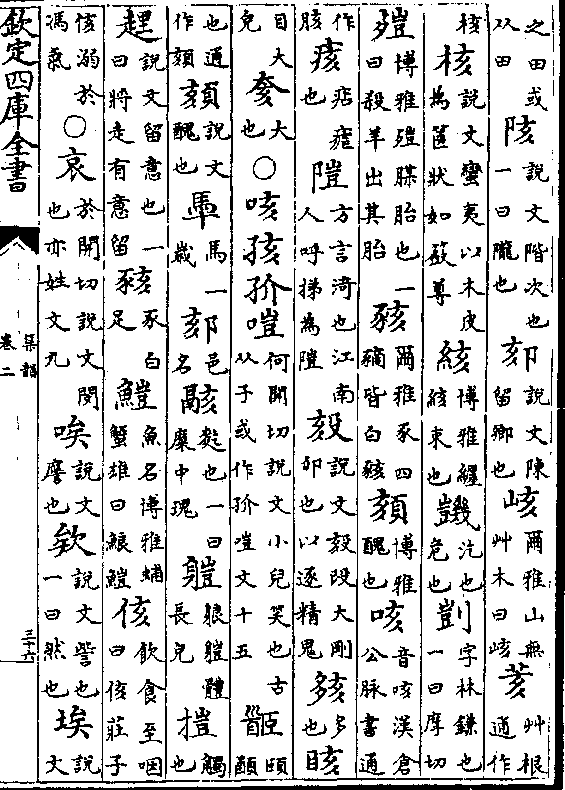 之田或从田 陔說文階次也一曰隴也 郂說文陳留鄉也 峐爾雅山無艸木曰峐 荄艸根通作
核 核說文蠻夷以木皮為篋狀如籢尊 絯博雅纏絯束也 汽也危也 剴字林鎌也一曰摩切
博雅腜胎也一曰殺羊出其胎 豥爾雅豕四蹢皆白豥 頦博雅醜也 咳音咳漢倉公脉書通
作胲 痎痁瘧也 隑方言也江南人呼梯為隑 說文毅大剛卯也以逐精鬼 㚊多也 晐
目大皃 奒大也 ○咳孩嘊何開切說文小兒笑也古从子或作嘊文十五 頤
也通作頦 頦說文醜也 馬一歲 郂邑名 麧也一曰糜中塊 躴體長皃 觸也
說文留意也一曰將走有意留 豥豕白足 魚名博雅鯆蟹雄曰 侅飲食至咽曰侅莊子
侅溺於馮氣 ○哀於開切說文閔也亦姓文九 唉說文譍也 欸說文訾也一曰然也 埃說文
欽定四庫全書
集韻
卷二
三十六